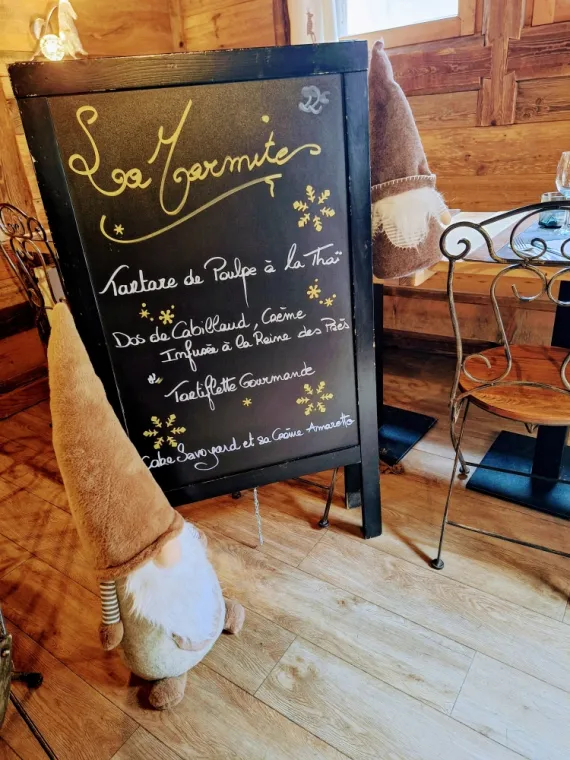 22€
La Marmite
Tartare de Poulpe à la Thaï
Dos de Cabillaud, Crème
Infusée à la Reine des Prés
Tartiflette Gourmande
Cake Savoyard et sa Crème Amaretto